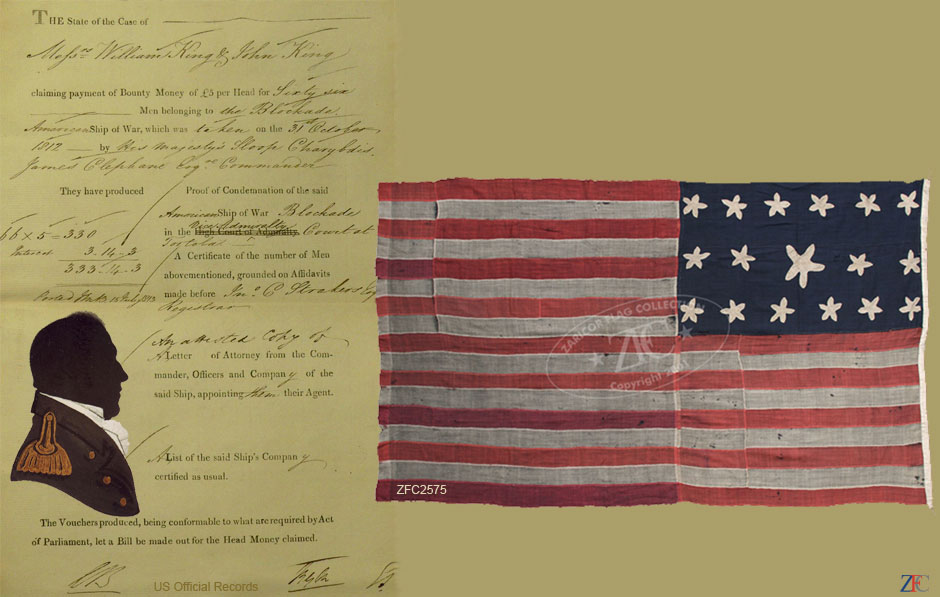 THE State of the Case of
Messrs William King & John King
claiming payment of Bounty Money of £5 per Head for Sixty six
Men belonging to the Blockade
American Ship of War, which was taken on the 31st October
1812 by His Majesty's Sloop Charybdis
James Clephane Esqre Commander
They have produced
Proof of Condemnation of the said
American Ship of War Blockade
Vice Admiralty
in the High Court of Admiralty. Court at
Tortola
66 x 5 = 330
Interest 3.14.3
333.14.3
A Certificate of the number of Men
abovementioned, grounded on Affidavits
made before Jno C
Registrar
An attested Copy of
A Letter of Attorney from the Com-
mander, Officers and Company of the
said Ship, appointing them their Agent.
A List of the said Ship's Company
certified as usual.
The Vouchers produced, being conformable to what are required by Act
of Parliament, let a Bill be made out for the Head Money claimed.
US Official Records
ZARICOR FLAG COLLECTION
ZFC
Copyright
ZFC2575
ZFC